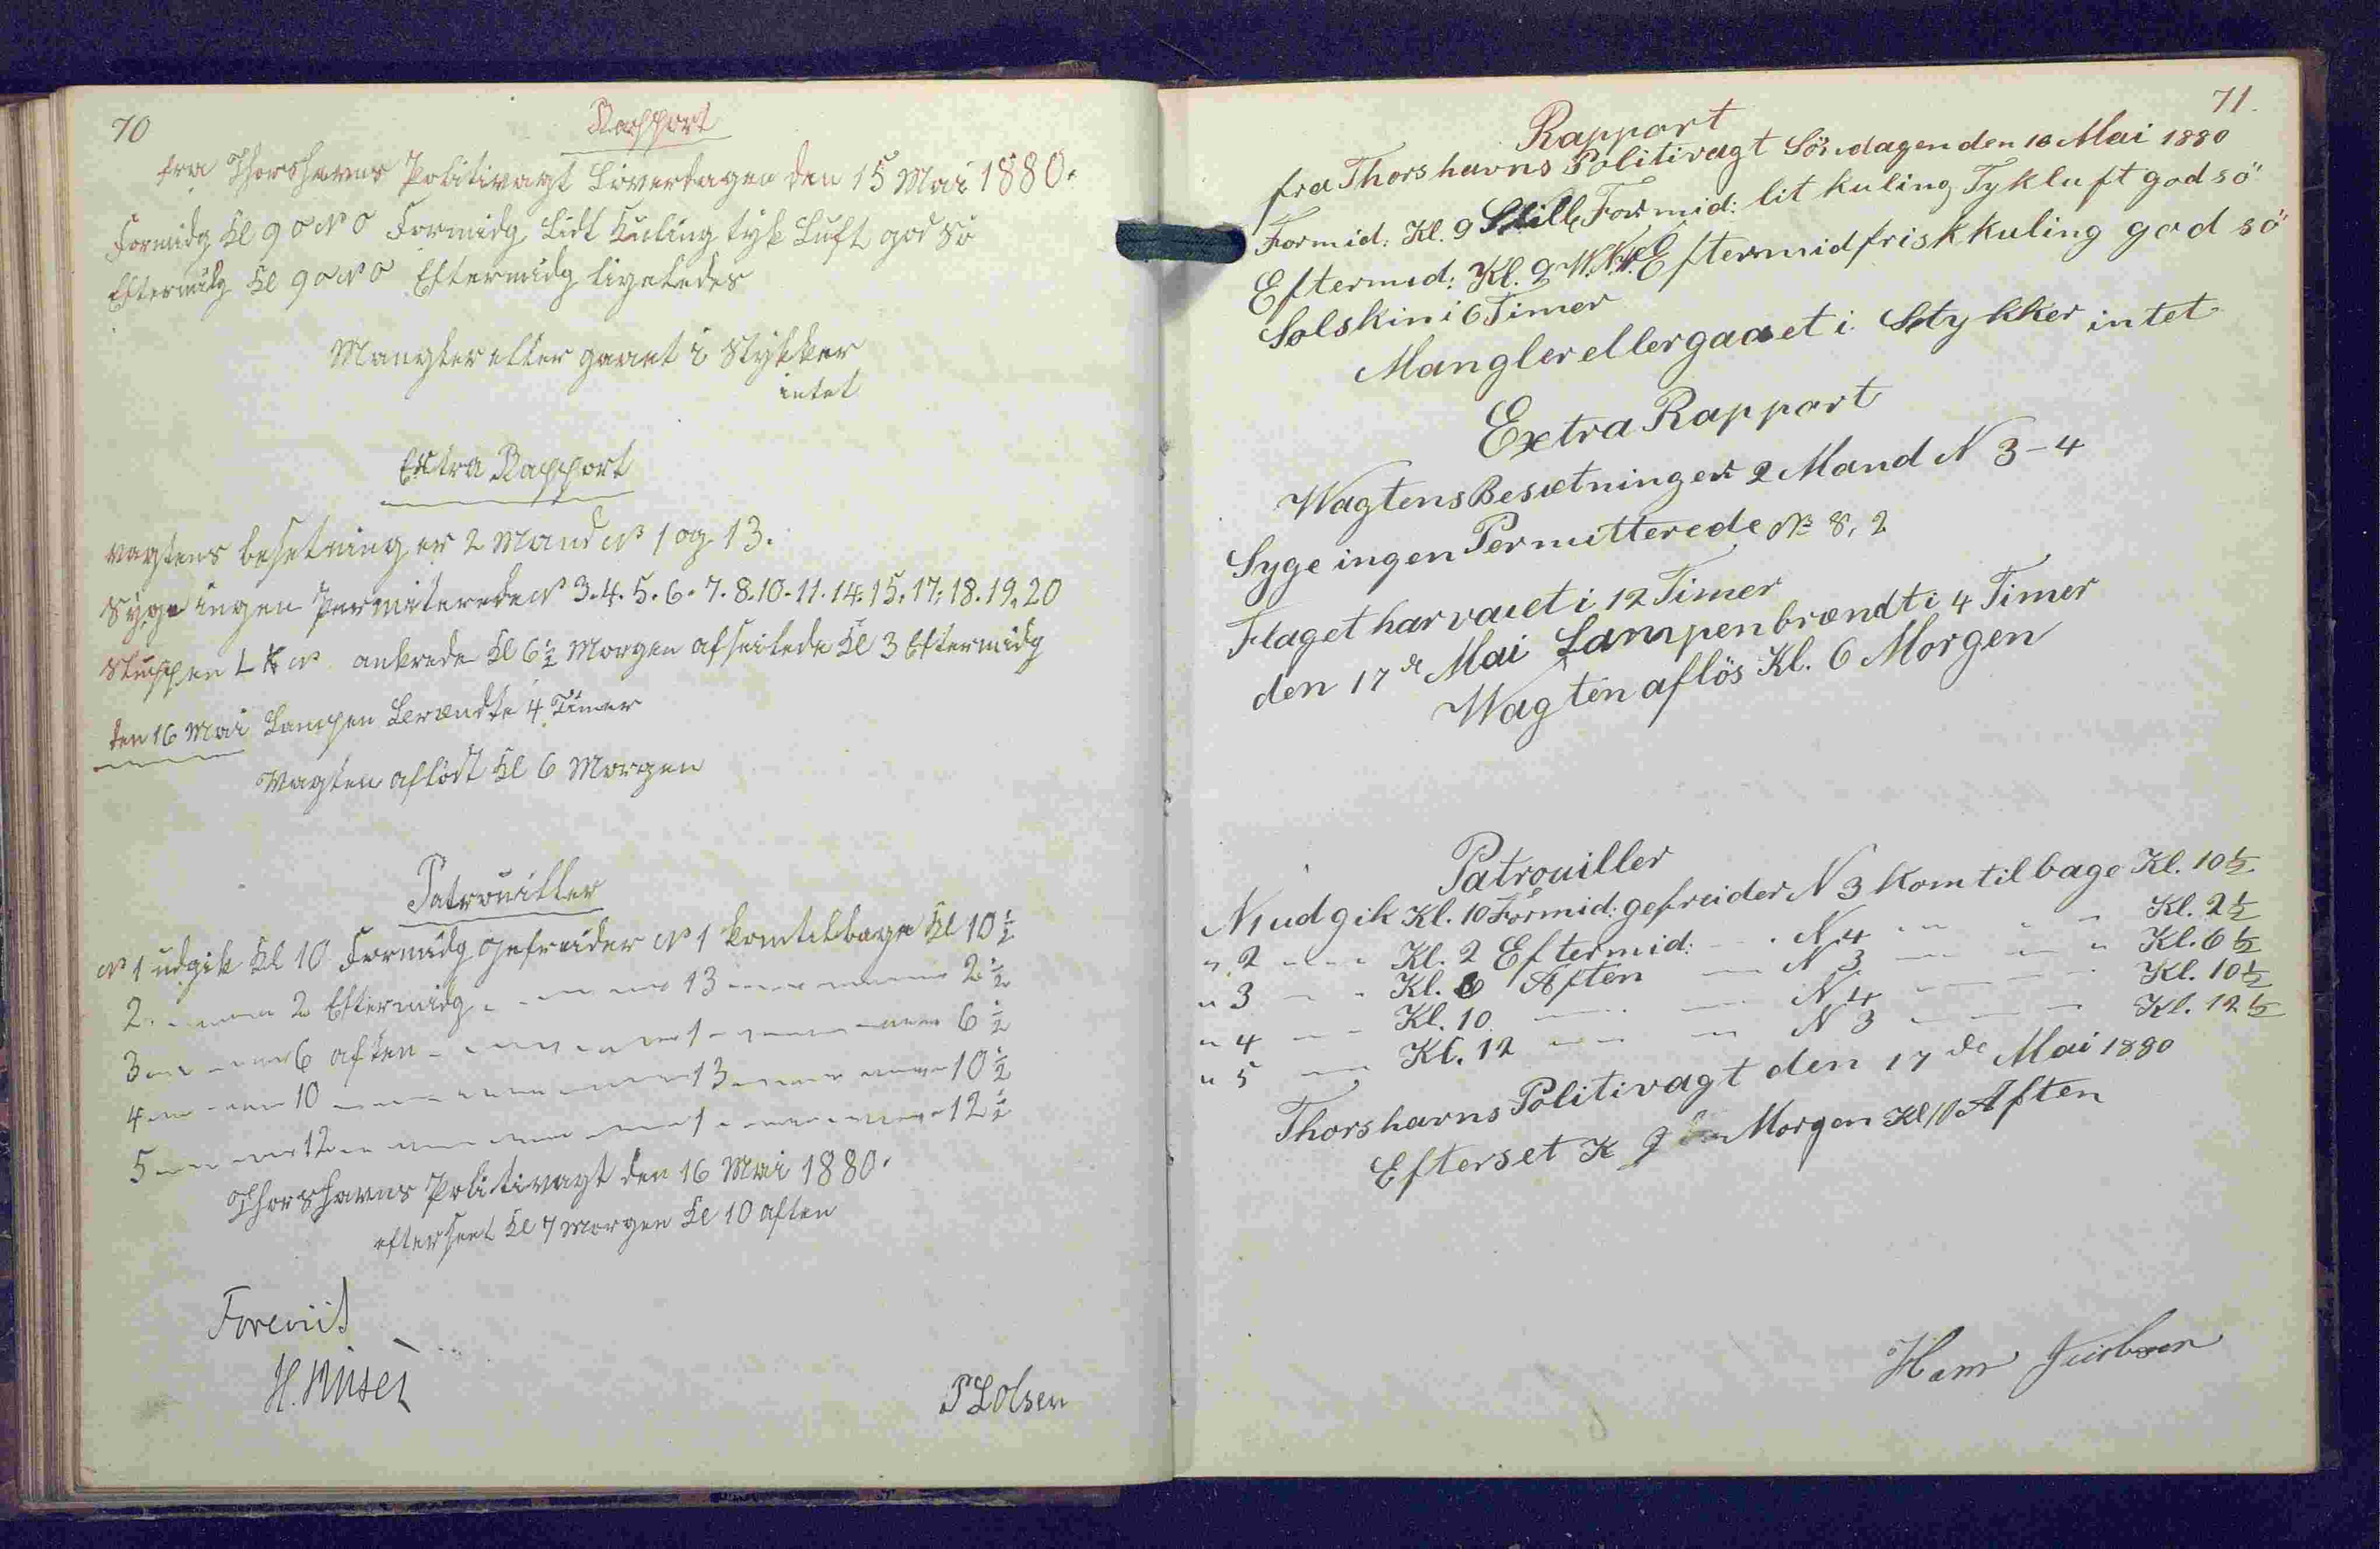 70
Rapport
fra Thorshavns Politivagt Løverdagen den 15 Mai 1880.
Formidg Kl 9 O N O Formidg Lidt Kuling tyk Luft god Sø
Eftermidg Kl 9 O N O Eftermidg ligeledes
Mangler eller gaaet i Stykker
intet
Extra Rapport
Vagtens besetning er 2 Mand N 1 og 13.
Syge ingen Permiterede N 3.4.5.6.7.8.10.11.14.15.17.18.19.20
Sluppen ankrede Kl 6½ Morgen afseilede Kl 3 Eftermidg
den 16 Mai Lampen Brændte 4 Timer
Vagten afløst Kl 6 Morgen
Patrouiller
N 1 udgik Kl 10 Formidg gefreider N 1 kom tilbage Kl 10½
2 " " 2 Eftermidg " " 13 " " 2½
3 " " 6 aften " " 1 " " 6½
4 " " 10 " " 13 " " 10½
5 " " 12 " " 1 " " 12½
Thorshavns Politivagt den 16 Mai 1880.
efterseet Kl 7 Morgen Kl 10 aften
Foreviist
P L Olsen
71.
Rapport
fra Thorshavns Politivagt Söndagen den 16 Mai 1880
Formid: Kl. 9 Stille Formid: lit kuling Tykluft god sö
Eftermid: Kl. 9 W.N.W. Eftermid frisk kuling god sö
Solskin i 6 Timer
Mangler eller gaaet i Stykker intet
Extra Rapport
Wagtens Besætning er 2 Mand N 3-4
Syge ingen Permitterede No 8, 2
Flaget har vaiet i 12 Timer
den 17de Mai Lampen brændt i 4 Timer
Wagten aflös Kl. 6 Morgen
Patrouiller
N 1 udgik Kl. 10 Formid: gefreider N 3 Kom tilbage Kl. 10½
" 2 " " Kl. 2 Eftermid: " N 4 " " Kl. 2½
" 3 " " Kl. 6 Aften " N 3 " " Kl. 6½
" 4 " " Kl. 10 " " N 4 " " Kl. 10½
" 5 " " Kl. 12 " " N 3 " " Kl. 12½
Thorshavns Politivagt den 17de Mai 1880
Efterset K Morgen Kl 10 Aften